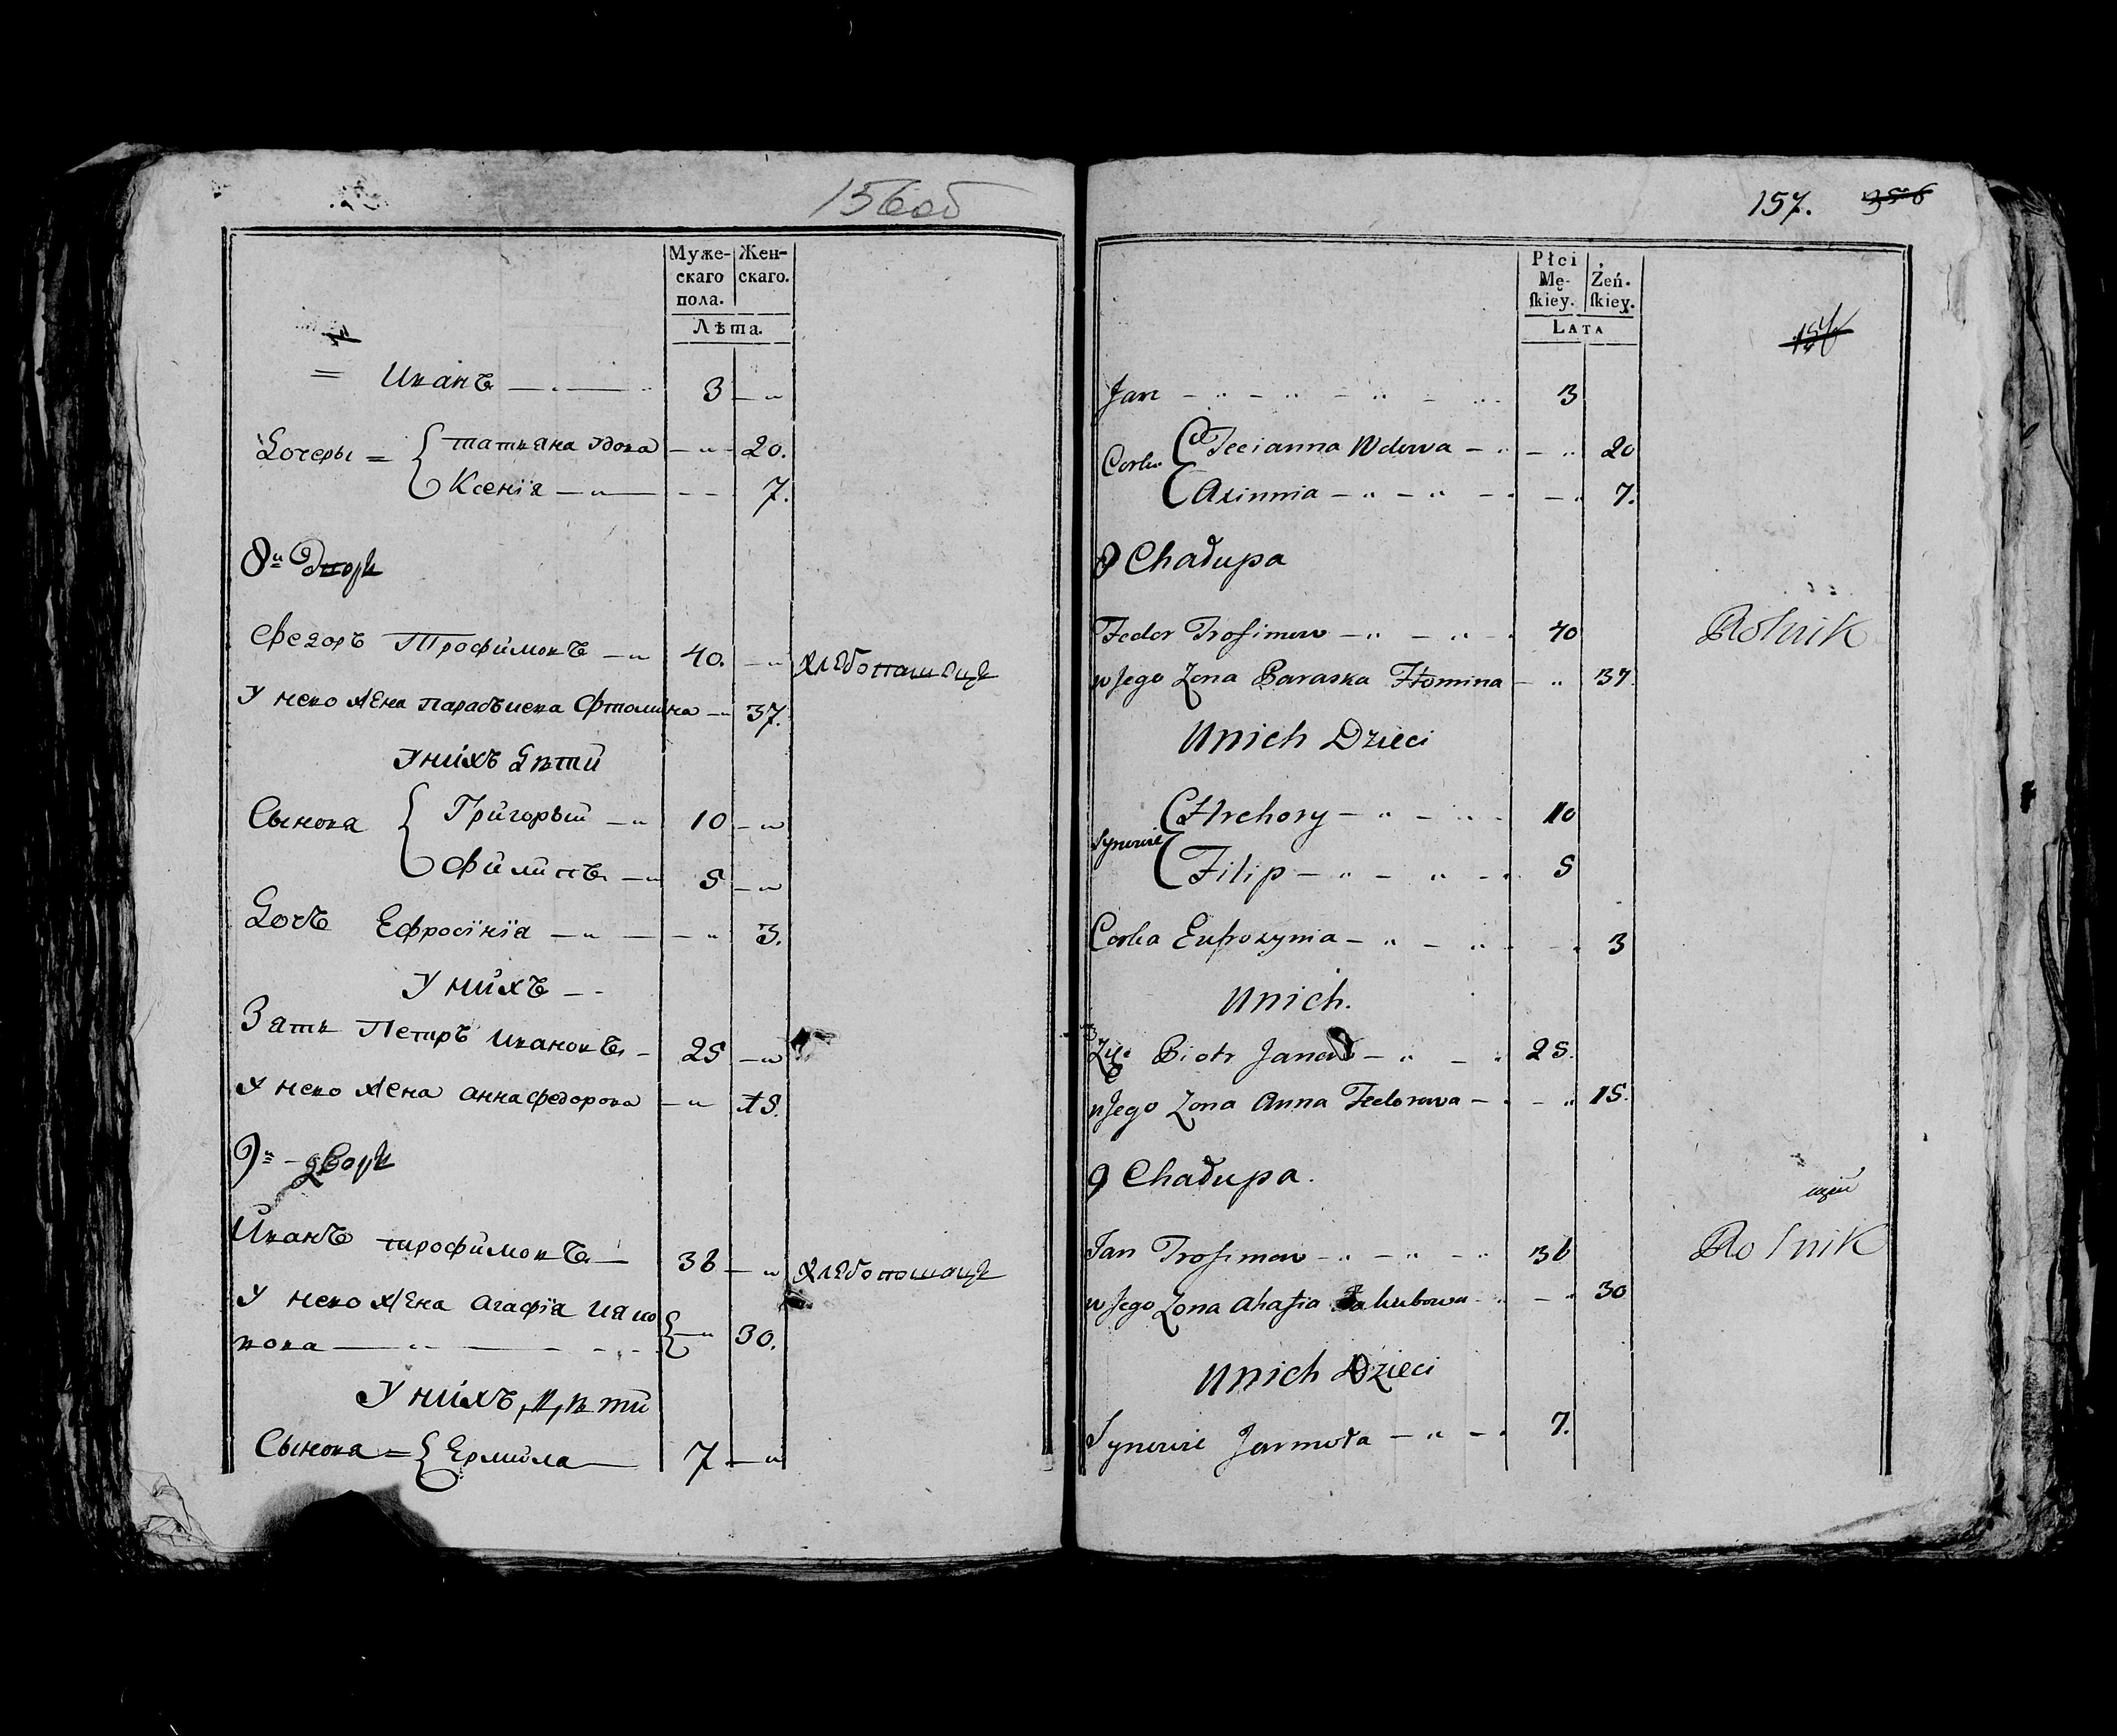 156об
Муже-
скаго
пола.
Жен-
скаго.
Лѣта.
= Иванъ 3
Дочеры = Татьяна Удова 20.
Ксенія 7.
8й Дворъ
Федоръ Трофимовъ 40. хлебопашецъ
У него жена Парасъиева Фтомина 37.
У нихъ дѣти
Сынова Григорый 10
Филипъ 5
Дочь Ефросінія 3.
У нихъ
Зять Петръ Ивановъ 25
У него жена Анна Федорова 15.
9й дворъ
Иванъ Трофимовъ 36 хлебопашецъ
У него жена Агафія Іяко
вова 30.
У нихъ дѣти
Сынова = Ермила 7
157. 356
Płci
Mę-
ſkiey.
Żeń-
ſkiey.
LATA
Jan 3
Corka Tecianna Wdowa 20
Axinnia 7.
8 Chałupa
Fedor Trofimow 40 Rolnik
u Jego Zona Paraska Ftomina 37
Unich Dzieci
Synowie Hrehory 10
Filip 5
Corka Eufrozynia 3
Unich.
Zięć Piotr Janow 25.
u Jego Zona Anna Fedorowa 15.
9 Chałupa.
щей
Jan Trofimow 36 Rolnik
u Jego Zona Ahafia Jakubowa 30
Unich Dzieci
Synowie Jarmoła 7.